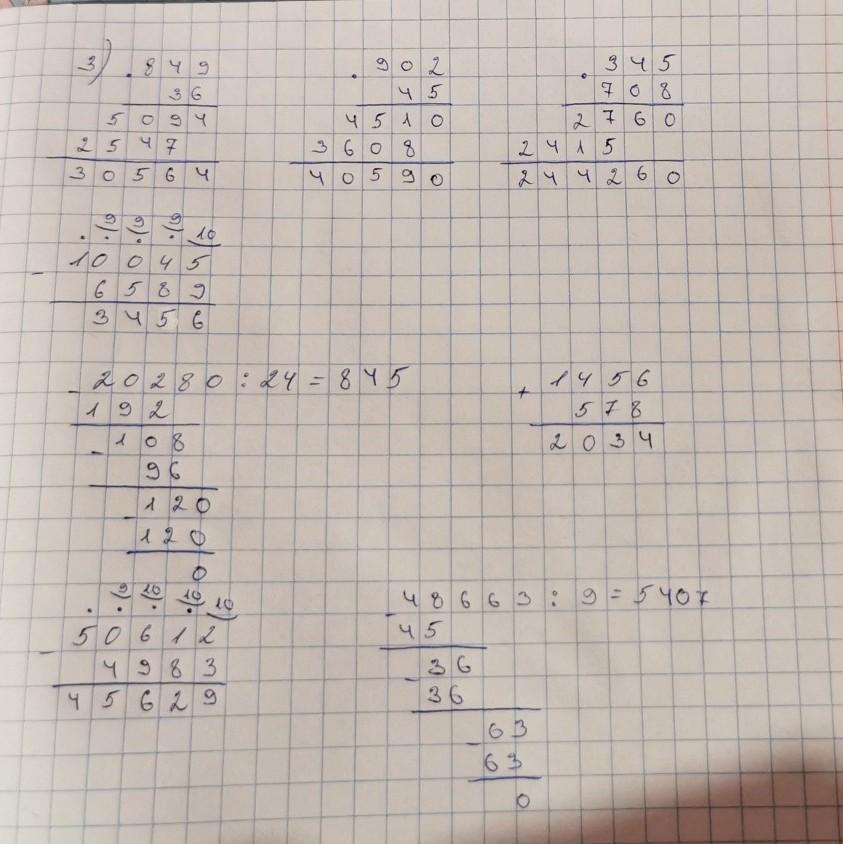 3) . 849 . 902 . 345
36 45 708
5094 4510 2760
2547 3608 2415
30564 40590 244260
. 9 9 9 10
- 10045
6589
3456
- 20280 : 24 = 845 + 1456
192 578
- 108 2034
96
- 120
120
0
. 9 10 10 10 - 48663 : 9 = 5407
- 50612 45
4983 - 36
45629 36
- 63
63
0